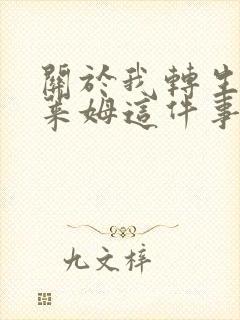 關於我轉生
萊姆這件事
九文梓